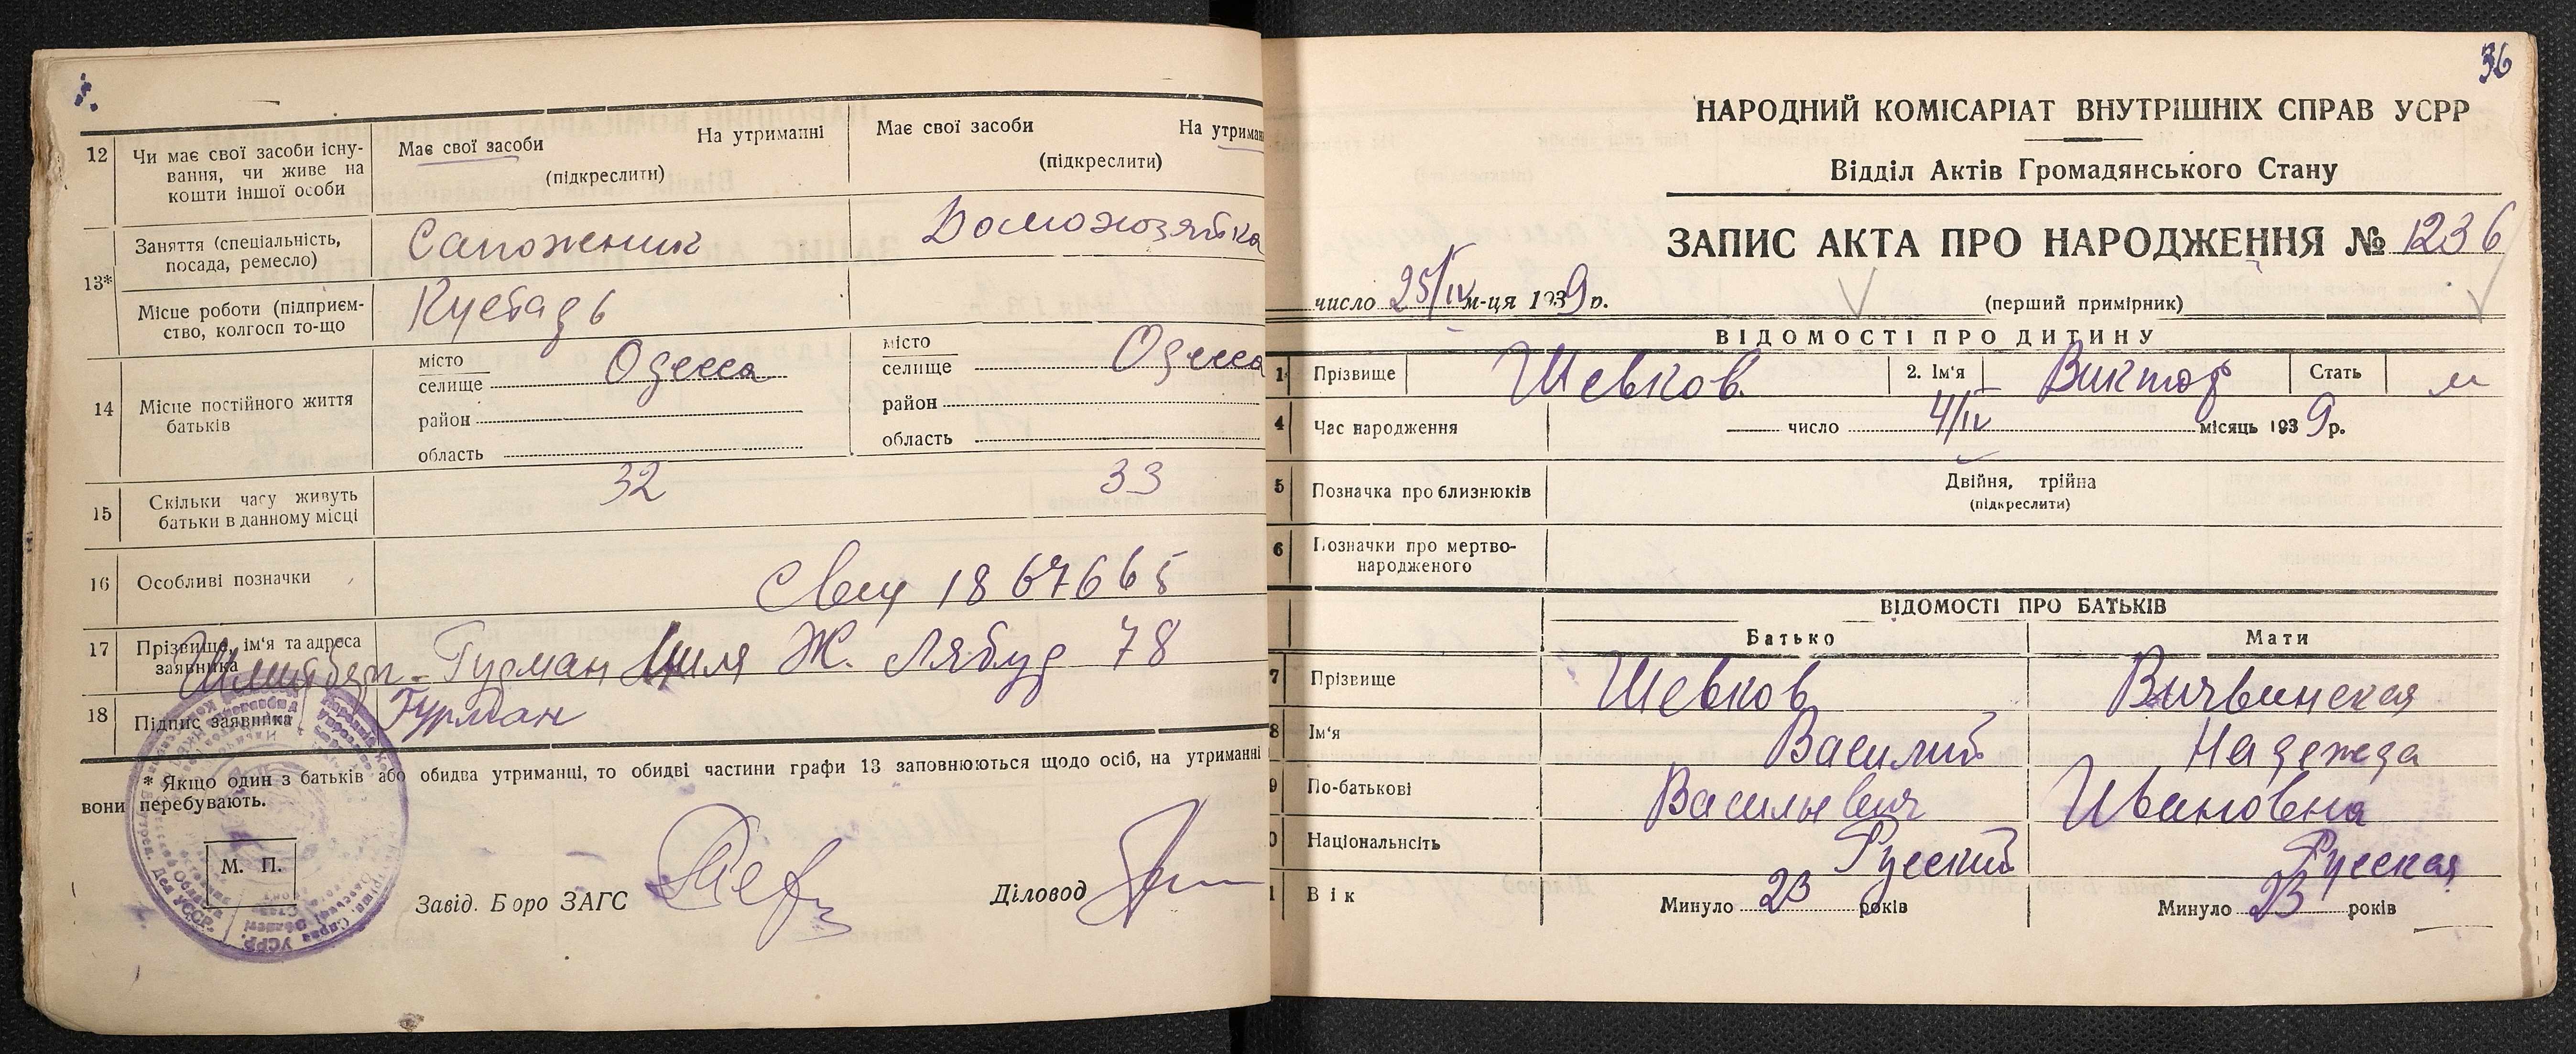 12 Чи має свої засоби існування, чи живе на кошти іншої особи
Має свої засоби На утриманні
(підкреслити)
Має свої засоби На утриман
(підкреслити)
13*
Заняття (спеціальність, посада, ремесло)
Сапожник
Домохозяйка
Місце роботи (підприємство, колгосп то-що
14 Місце постійного життя батьків
місто
селище Одесса
район
область
місто
селище Одесса
район
область
15 Скільки часу живуть батьки в данному місці
32
33
16 Особливі позначки
1867665
17 Прізвище, ім'я та адреса заявника
Гурман Циля Ж. 78
18 Підпис заявника
Гурман
* Якщо один з батьків або обидва утриманці, то обидві частини графи 13 заповнюються щодо осіб, на утриманні
вони перебувають.
М. П.
Завід. Бюро ЗАГС
Діловод
36
НАРОДНИЙ КОМІСАРІАТ ВНУТРІШНІХ СПРАВ УСРР
Відділ Актів Громадянського Стану
ЗАПИС АКТА ПРО НАРОДЖЕННЯ № 1236
число 25/IV м-ця 1939 р.
(перший примірник)
ВІДОМОСТІ ПРО ДИТИНУ
1 Прізвище Шевков 2. Ім'я Виктор Стать м
4 Час народження число 4/IV місяць 1939 р.
5 Позначка про близнюків Двійня, трійна
(підкреслити)
6 Позначки про мертвонародженого
ВІДОМОСТІ ПРО БАТЬКІВ
Батько Мати
7 Прізвище Шевков
8 Ім'я Василий Надежда
9 По-батькові Васильевич Ивановна
0 Національність Русский Русская
1 Вік Минуло 23 років Минуло 23 років